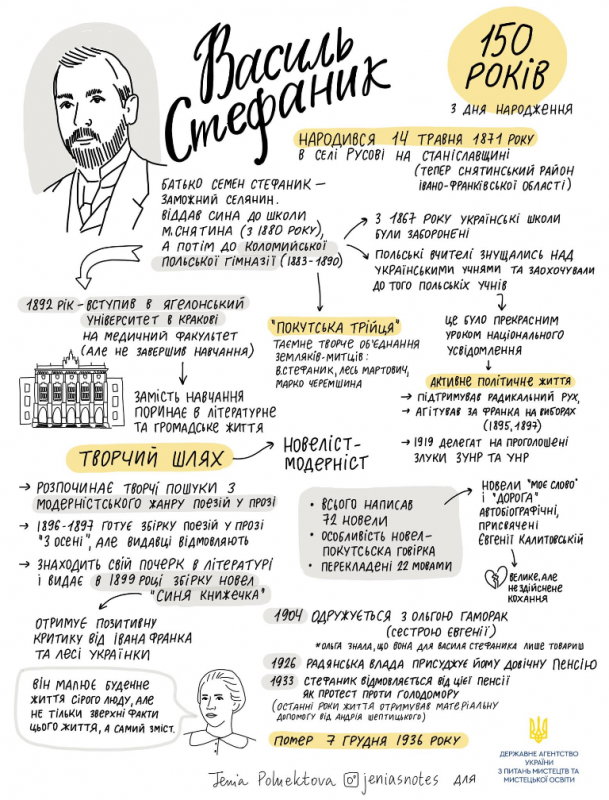 Василь
Стефаник
150
РОКІВ
З ДНЯ НАРОДЖЕННЯ
НАРОДИВСЯ 14 ТРАВНЯ 1871 РОКУ
В СЕЛІ РУСОВІ НА СТАНІСЛАВЩИНІ
(ТЕПЕР СНЯТИНСЬКИЙ РАЙОН
ІВАНО-ФРАНКІВСЬКОЇ ОБЛАСТІ)
БАТЬКО СЕМЕН СТЕФАНИК —
ЗАМОЖНИЙ СЕЛЯНИН.
ВІДДАВ СИНА ДО ШКОЛИ
М.СНЯТИНА (З 1880 РОКУ),
А ПОТІМ ДО КОЛОМИЙСЬКОЇ
ПОЛЬСЬКОЇ ГІМНАЗІЇ (1883-1890)
З 1867 РОКУ УКРАЇНСЬКІ ШКОЛИ
БУЛИ ЗАБОРОНЕНІ
ПОЛЬСЬКІ ВЧИТЕЛІ ЗНУЩАЛИСЬ НАД
УКРАЇНСЬКИМИ УЧНЯМИ ТА ЗАОХОЧУВАЛИ
ДО ТОГО ПОЛЬСЬКИХ УЧНІВ
ЦЕ БУЛО ПРЕКРАСНИМ
УРОКОМ НАЦІОНАЛЬНОГО
УСВІДОМЛЕННЯ
1892 РІК – ВСТУПИВ В ЯГЕЛОНСЬКИЙ
УНІВЕРСИТЕТ В КРАКОВІ
НА МЕДИЧНИЙ ФАКУЛЬТЕТ
(АЛЕ НЕ ЗАВЕРШИВ НАВЧАННЯ)
ЗАМІСТЬ НАВЧАННЯ
ПОРИНАЄ В ЛІТЕРАТУРНЕ
ТА ГРОМАДСЬКЕ ЖИТТЯ
"ПОКУТСЬКА ТРІЙЦЯ"
ТАЄМНЕ ТВОРЧЕ ОБ'ЄДНАННЯ
ЗЕМЛЯКІВ-МИТЦІВ:
В.СТЕФАНИК, ЛЕСЬ МАРТОВИЧ,
МАРКО ЧЕРЕМШИНА
АКТИВНЕ ПОЛІТИЧНЕ ЖИТТЯ
→ ПІДТРИМУВАВ РАДИКАЛЬНИЙ РУХ,
→ АГІТУВАВ ЗА ФРАНКА НА ВИБОРАХ
(1895, 1897)
→ 1919 ДЕЛЕГАТ НА ПРОГОЛОШЕНІ
ЗЛУКИ ЗУНР ТА УНР
ТВОРЧИЙ ШЛЯХ
НОВЕЛІСТ-
МОДЕРНІСТ
→ РОЗПОЧИНАЄ ТВОРЧІ ПОШУКИ З
МОДЕРНІСТСЬКОГО ЖАНРУ ПОЕЗІЙ У ПРОЗІ
→ 1896-1897 ГОТУЄ ЗБІРКУ ПОЕЗІЙ У ПРОЗІ
"З ОСЕНІ", АЛЕ ВИДАВЦІ ВІДМОВЛЯЮТЬ
→ ЗНАХОДИТЬ СВІЙ ПОЧЕРК В ЛІТЕРАТУРІ
І ВИДАЄ В 1899 РОЦІ ЗБІРКУ НОВЕЛ
"СИНЯ КНИЖЕЧКА"
• ВСЬОГО НАПИСАВ
72 НОВЕЛИ
• ОСОБЛИВІСТЬ НОВЕЛ-
ПОКУТСЬСКА ГОВІРКА
• ПЕРЕКЛАДЕНІ 22 МОВАМИ
НОВЕЛИ "МОЄ СЛОВО"
І "ДОРОГА"
АВТОБІОГРАФІЧНІ,
ПРИСВЯЧЕНІ
ЄВГЕНІЇ КАЛИТОВСЬКІЙ
ВЕЛИКЕ, АЛЕ
НЕЗДІЙСНЕНЕ
КОХАННЯ
ОТРИМУЄ ПОЗИТИВНУ
КРИТИКУ ВІД ІВАНА ФРАНКА
ТА ЛЕСІ УКРАЇНКИ
1904 ОДРУЖУЄТЬСЯ З ОЛЬГОЮ ГАМОРАК
(СЕСТРОЮ ЄВГЕНІЇ)
*ОЛЬГА ЗНАЛА, ЩО ВОНА ДЛЯ ВАСИЛЯ СТЕФАНИКА ЛИШЕ ТОВАРИШ
1926 РАДЯНСЬКА ВЛАДА ПРИСУДЖУЄ ЙОМУ ДОВІЧНУ ПЕНСІЮ
1933 СТЕФАНИК ВІДМОВЛЯЄТЬСЯ ВІД ЦІЄЇ ПЕНСІЇ
ЯК ПРОТЕСТ ПРОТИ ГОЛОДОМОРУ
(ОСТАННІ РОКИ ЖИТТЯ ОТРИМУВАВ МАТЕРІАЛЬНУ
ДОПОМОГУ ВІД АНДРІЯ ШЕПТИЦЬКОГО)
ВІН МАЛЮЄ БУДЕННЕ
ЖИТТЯ СІРОГО ЛЮДУ, АЛЕ
НЕ ТІЛЬКИ ЗВЕРХНІ ФАКТИ
ЦЬОГО ЖИТТЯ, А САМИЙ ЗМІСТ.
ПОМЕР 7 ГРУДНЯ 1936 РОКУ
Jenia Poluektova jeniasnotes для
ДЕРЖАВНЕ АГЕНТСТВО
УКРАЇНИ
З ПИТАНЬ МИСТЕЦТВ ТА
МИСТЕЦЬКОЇ ОСВІТИ